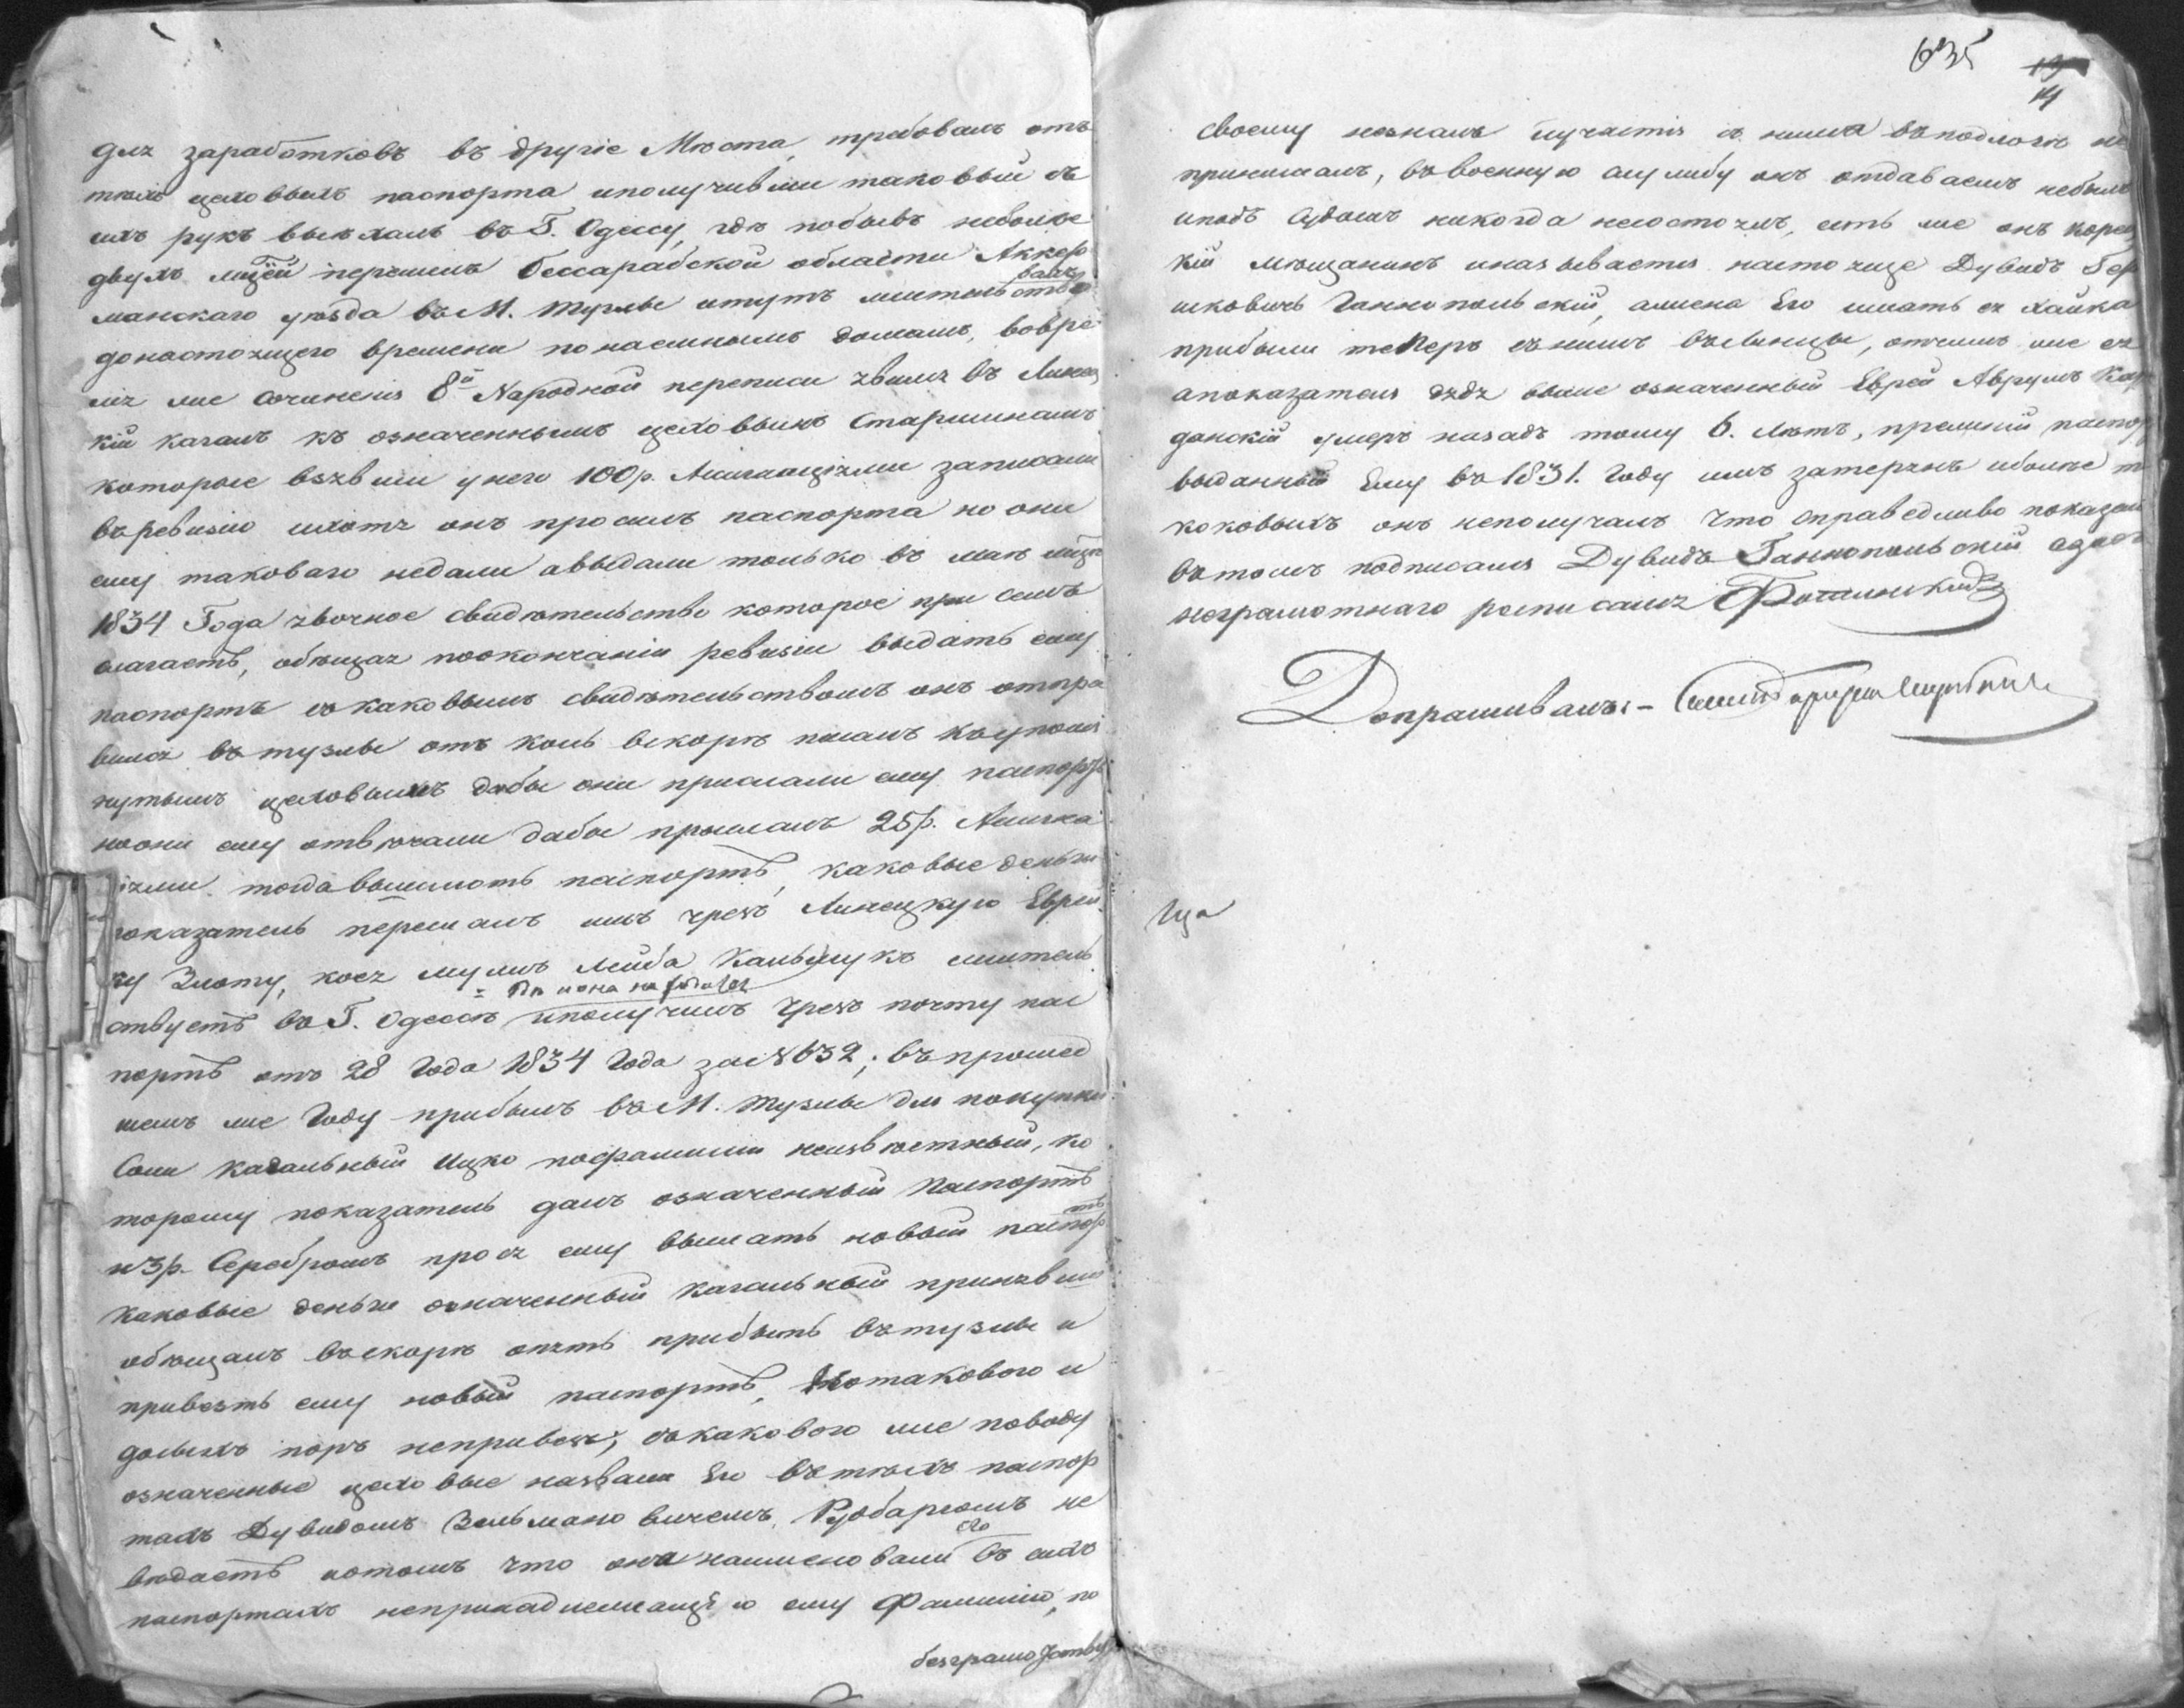 для заработковъ въ другіе Мѣста, требовалъ отъ
тѣхъ цеховыхъ паспорта иполучивши таковый съ
ихъ рукъ выѣхалъ въ Г. Одессу, гдѣ побывъ неболѣе
двухъ перешелъ Бессарабской области Аккер
манскаго уѣзда въ М. Тузлы итутъ жительствовалъ
донастоящего времени понаемнымъ домамъ, вовре
мя же сочиненія 8й Народной переписи явился въ Линец
кій кагалъ къ означеннымъ цеховымъ Старшинамъ
которые взявши унего 100 р. Ассигнаціями записали
въревизію ихотя онъ просилъ паспорта но они
ему таковаго недали авыдали только въ маѣ
1834 Года явочное свидѣтельство которое при семъ
прилагаетъ, обѣщая поокончаніи ревизіи выдать ему
паспортъ скаковымъ свидѣтельствомъ онъ отпра
вился въ тузлы отъ коль вскорѣ писалъ къупомя
нутымъ цеховымъ дабы они прислали ему паспортъ
ноони ему отвѣчали дабы прислалъ 25 р. Ассигна
ціями тогдавышлютъ паспортъ, каковые деньги
показатель переслалъ имъ чрезъ Линецкую Еврей
ку Злоту, коея мужъ Лейба жительст
ствуетъ въ Г. Одессѣ иполучилъ чрезъ почту пас
портъ отъ 28 Года 1834 Года за № 632; въпрошед
шемъ же Году прибылъ въ М. Тузлы для покупки
Соли кагальный Ицко пофамиліи неизвѣстный, ко
торому показатель далъ означенный Паспортъ
и 3 р. Серебромъ прося ему выслать новый паспортъ
каковые деньги означенный кагальный принявши
обѣщалъ въскорѣ опять прибыть вътузлы и
привезть ему новый паспортъ, нотаковаго и
досихъ поръ непривезъ, покакового же поводу
означенные цеховые назвали Его вътѣхъ паспор
тахъ Дувидомъ Зельмановичемъ, не
вѣдаетъ иотомъ что они наименовали его въ сихъ
паспортахъ непринадлежащую ему Фамилію, по
безграмотству
635
14
Своему незналъ иучастія съ ними въподлогѣ не
принималъ, ввоенную службу онъ отдаваемъ небылъ
иподъ Судомъ никогда несостоялъ, есть же онъ
кій мѣщанинъ иназывается настояще Дувидъ Бер
шковичъ Ганнопольскій, ажена Его имать ея хайка
прибыли теперъ снимъ въЛинцы, отчимъ же ея
апоказателя дядя выше означенный Еврей Аврумъ
данскій умеръ назадъ тому 6. Лѣтъ, прежній паспор
выданный Ему въ 1831. Году имъ затерянъ иболѣе
коковыхъ онъ неполучалъ что справедливо показалъ
вътомъ подписался Дувидъ Ганнопольскій азаего
неграмотнаго росписался
Допрашивалъ:-